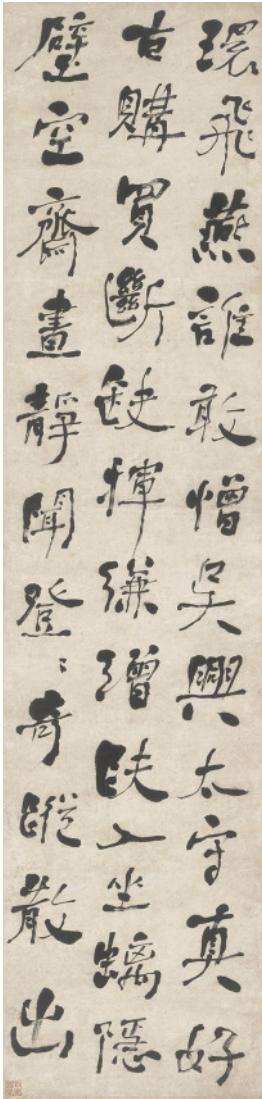 環飛燕誰敢憎吳興太守真好
古購買斷缺揮縑繒趺入坐螭隱
壁空齋晝靜聞登〻奇蹤散出